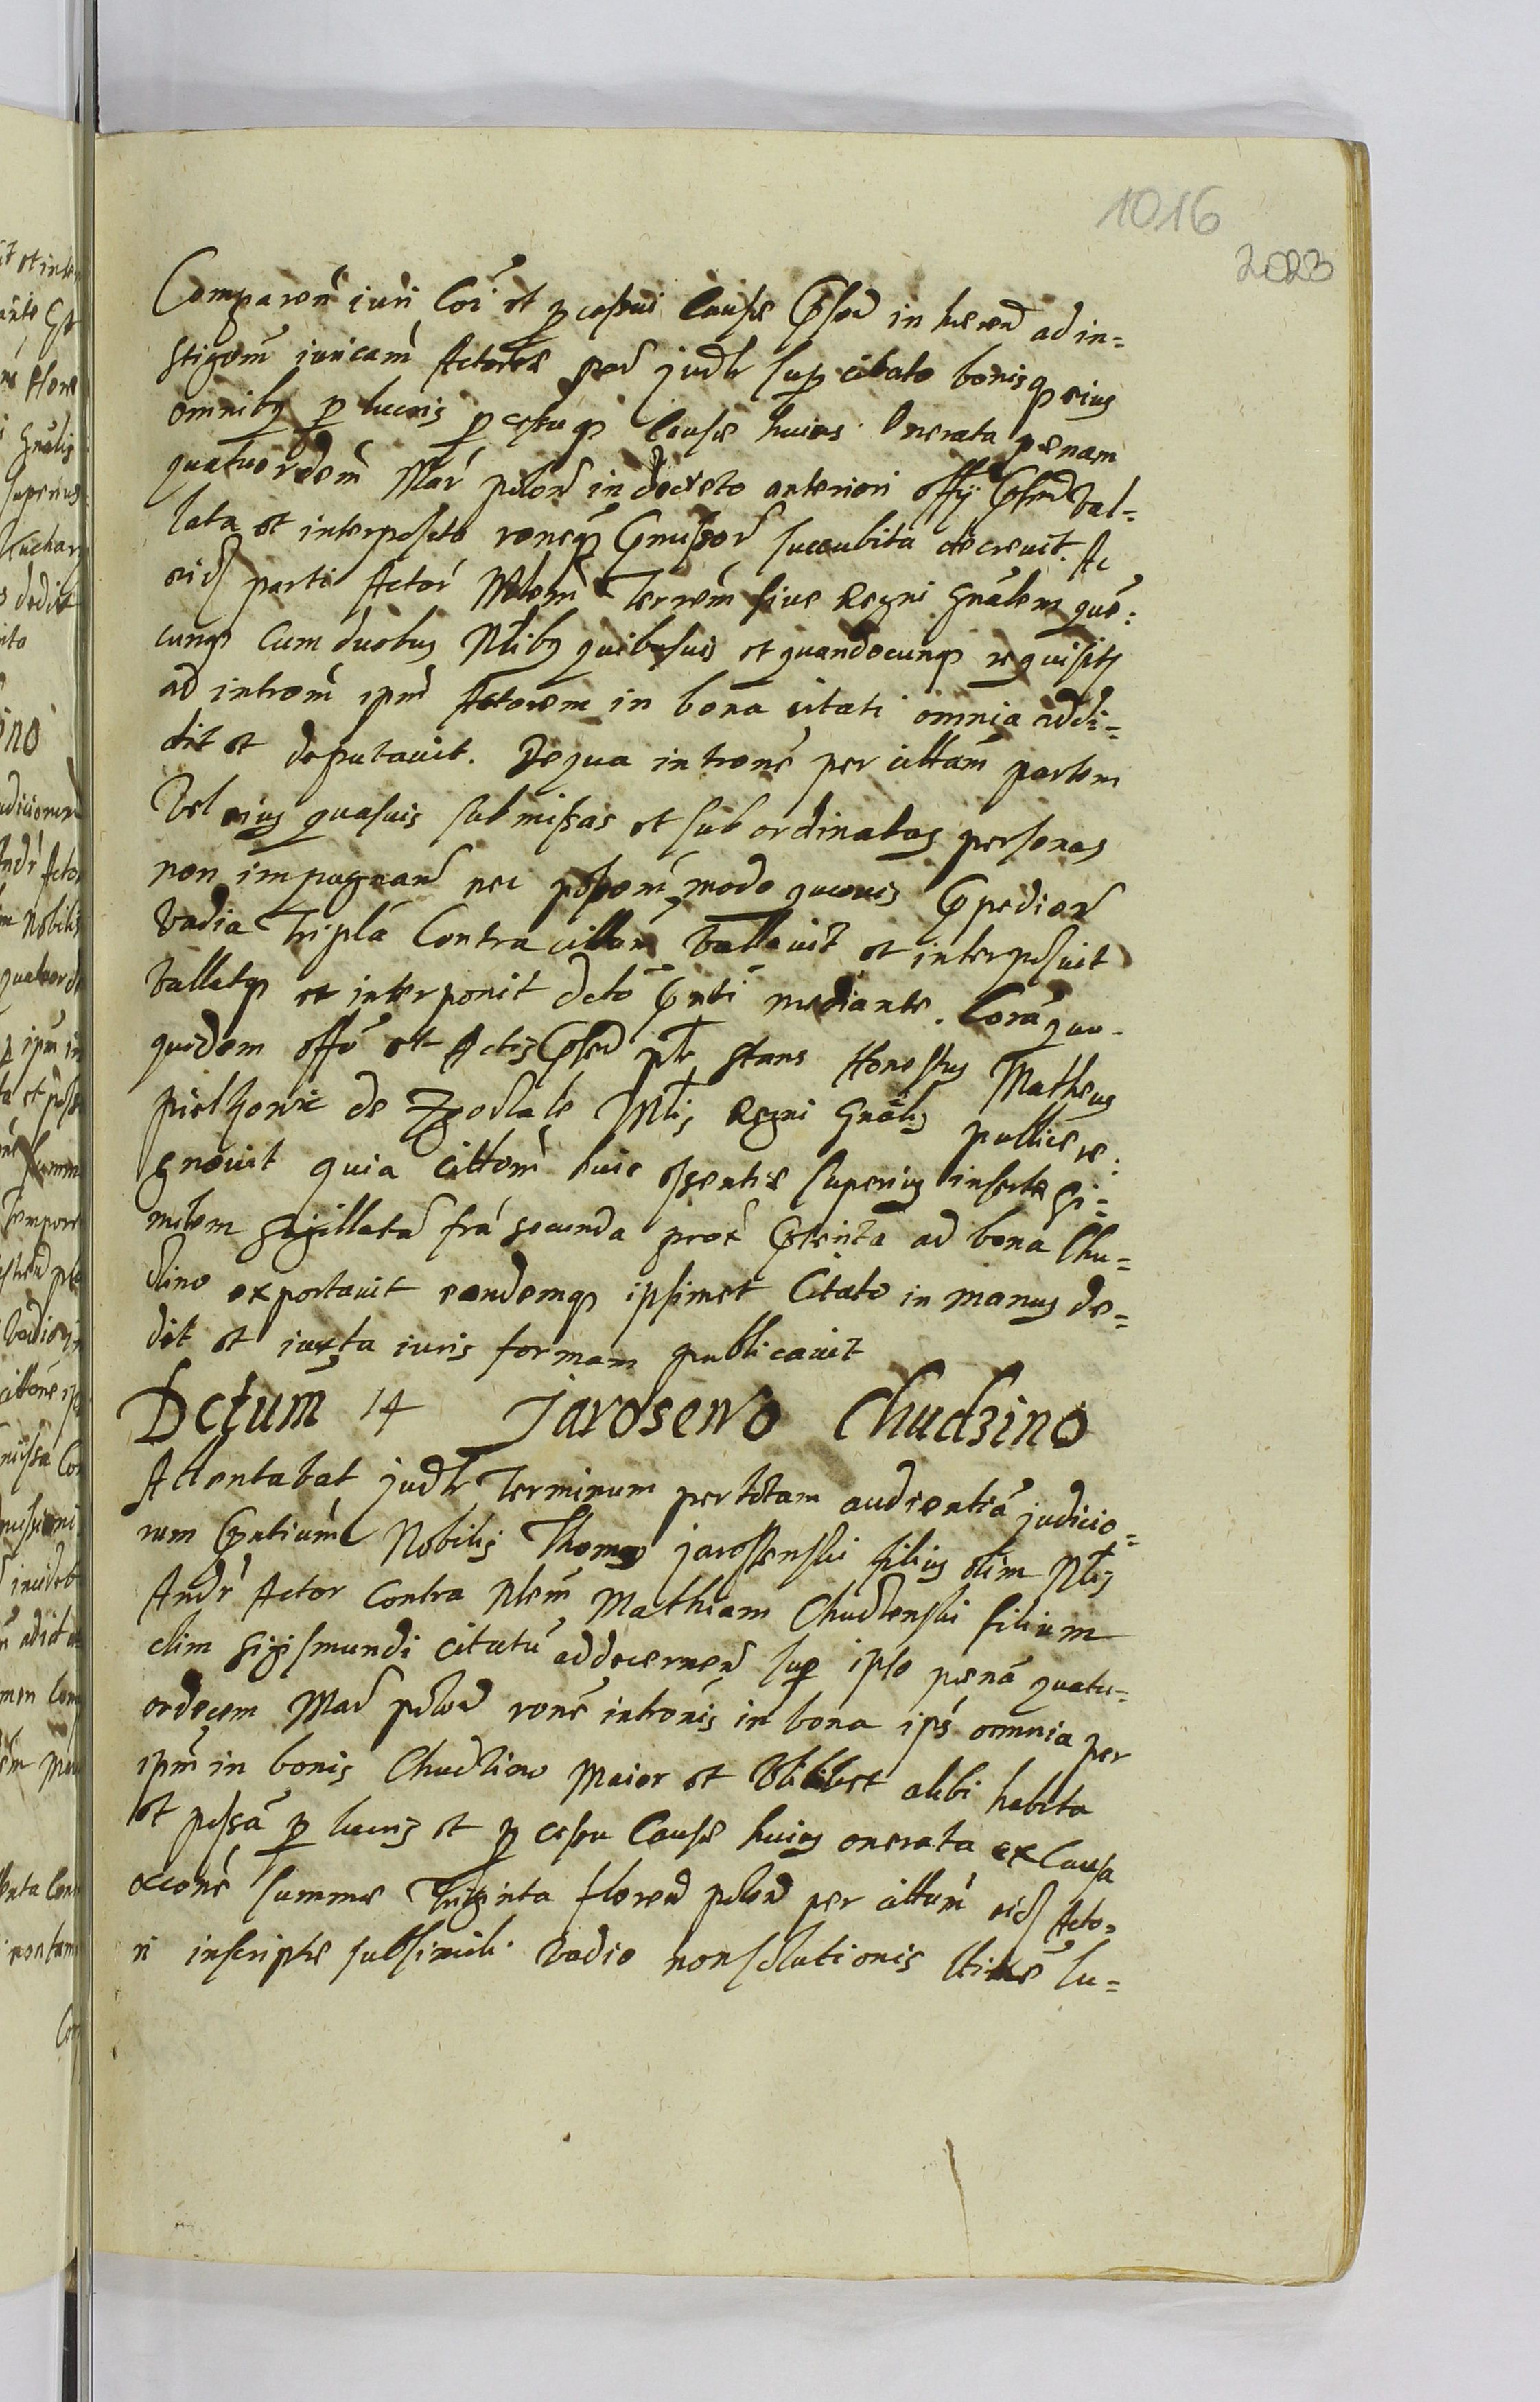 1016
2023
Comparen iuri Coi et pcessui Causae Psen in haeren ad in=
stigom iuricam Actoreae par judr sup citato bonisq eius
omnibq p lucris pcessuq Causae huius Onerata paenam
quatuordem Mar polon in decreto anteriori offy Psen val=
lata et interposita roneq Pmissor succubita decrevit. Ac
eid parti Actor Mlem Terrem sive Regni Gnalem que:
cunq cum duobus Nlibq quibusvis et quandocunq requisit
ad introm ipm Actorem in bona citati omnia addi=
dit et deputavit. De qua introne per cittam partem
Vel eius quasvis submissas et subordinatas personas
non impugnan nec possom modo quovis Ppedien
Vadia Tripla Contra cittam vallavit et interposuit
Vallatq et interponit dcto Pnti mediante. Cora quo
quidem offo et Actis Psen pr stans Honestus Matheus
de Mlis Regni Gnalis publice re:
gnovit quia cittom huic Psentiae superius insertae Si=
milem sigillata fra secunda prox Praeterita ad bona Chu=
dzino exportavit eandemq ipsimet Citato in manus de=
dit et iuxta iuris formam publicavit
Dctum 14 Jarosewo Chudzino
Attentabat judr Terminum per totam audientia judicio=
rum Pntium Nobilis Thomas Jarossenski filius olim Nlis
Andr Actor Contra Nlem Mathiam Chudzenski filium
olim Sigismundi citatu ad decernen sup ipso paena quatu=
ordecem Mar polon rone intronis in bona ips omnia per
ipm in bonis Chudzino Maior et Ubilibet alibi habita
et possa p lucris et p cessu Causae huius onerata ex Causa
occone summae Triginta floren polon per cittum eid Acto=
ri inscriptae sub simili vadio non solutionis su=